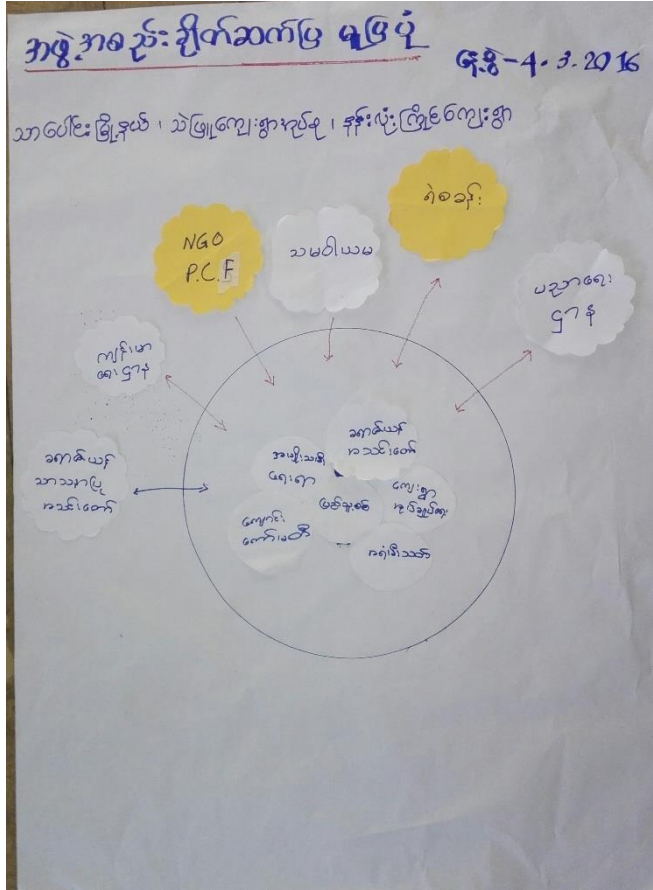 အဖွဲ့အစည်းချိတ်ဆက်ပြ မြေပုံ
နေ့စွဲ-4.3.2016
သာပေါင်းမြို့နယ်၊ သဲဖြူကျေးရွာအုပ်စု၊ နန်းလုံးကြိုင်ကျေးရွာ
NGO
P.C.F
သမဝါယမ
ရဲစခန်း
ပညာရေး
ဌာန
ကျန်းမာ
ရေးဌာန
ခရာစ်ယန်
သာသနာပြု
အသင်းတော်
ခရာစ်ယန်
အသင်းတော်
အမျိုးသမီး
ရေးရာ
ကျေးရွာ
အုပ်ချုပ်ရေး
ကျောင်း
ကော်မတီ
အရံမီးသတ်